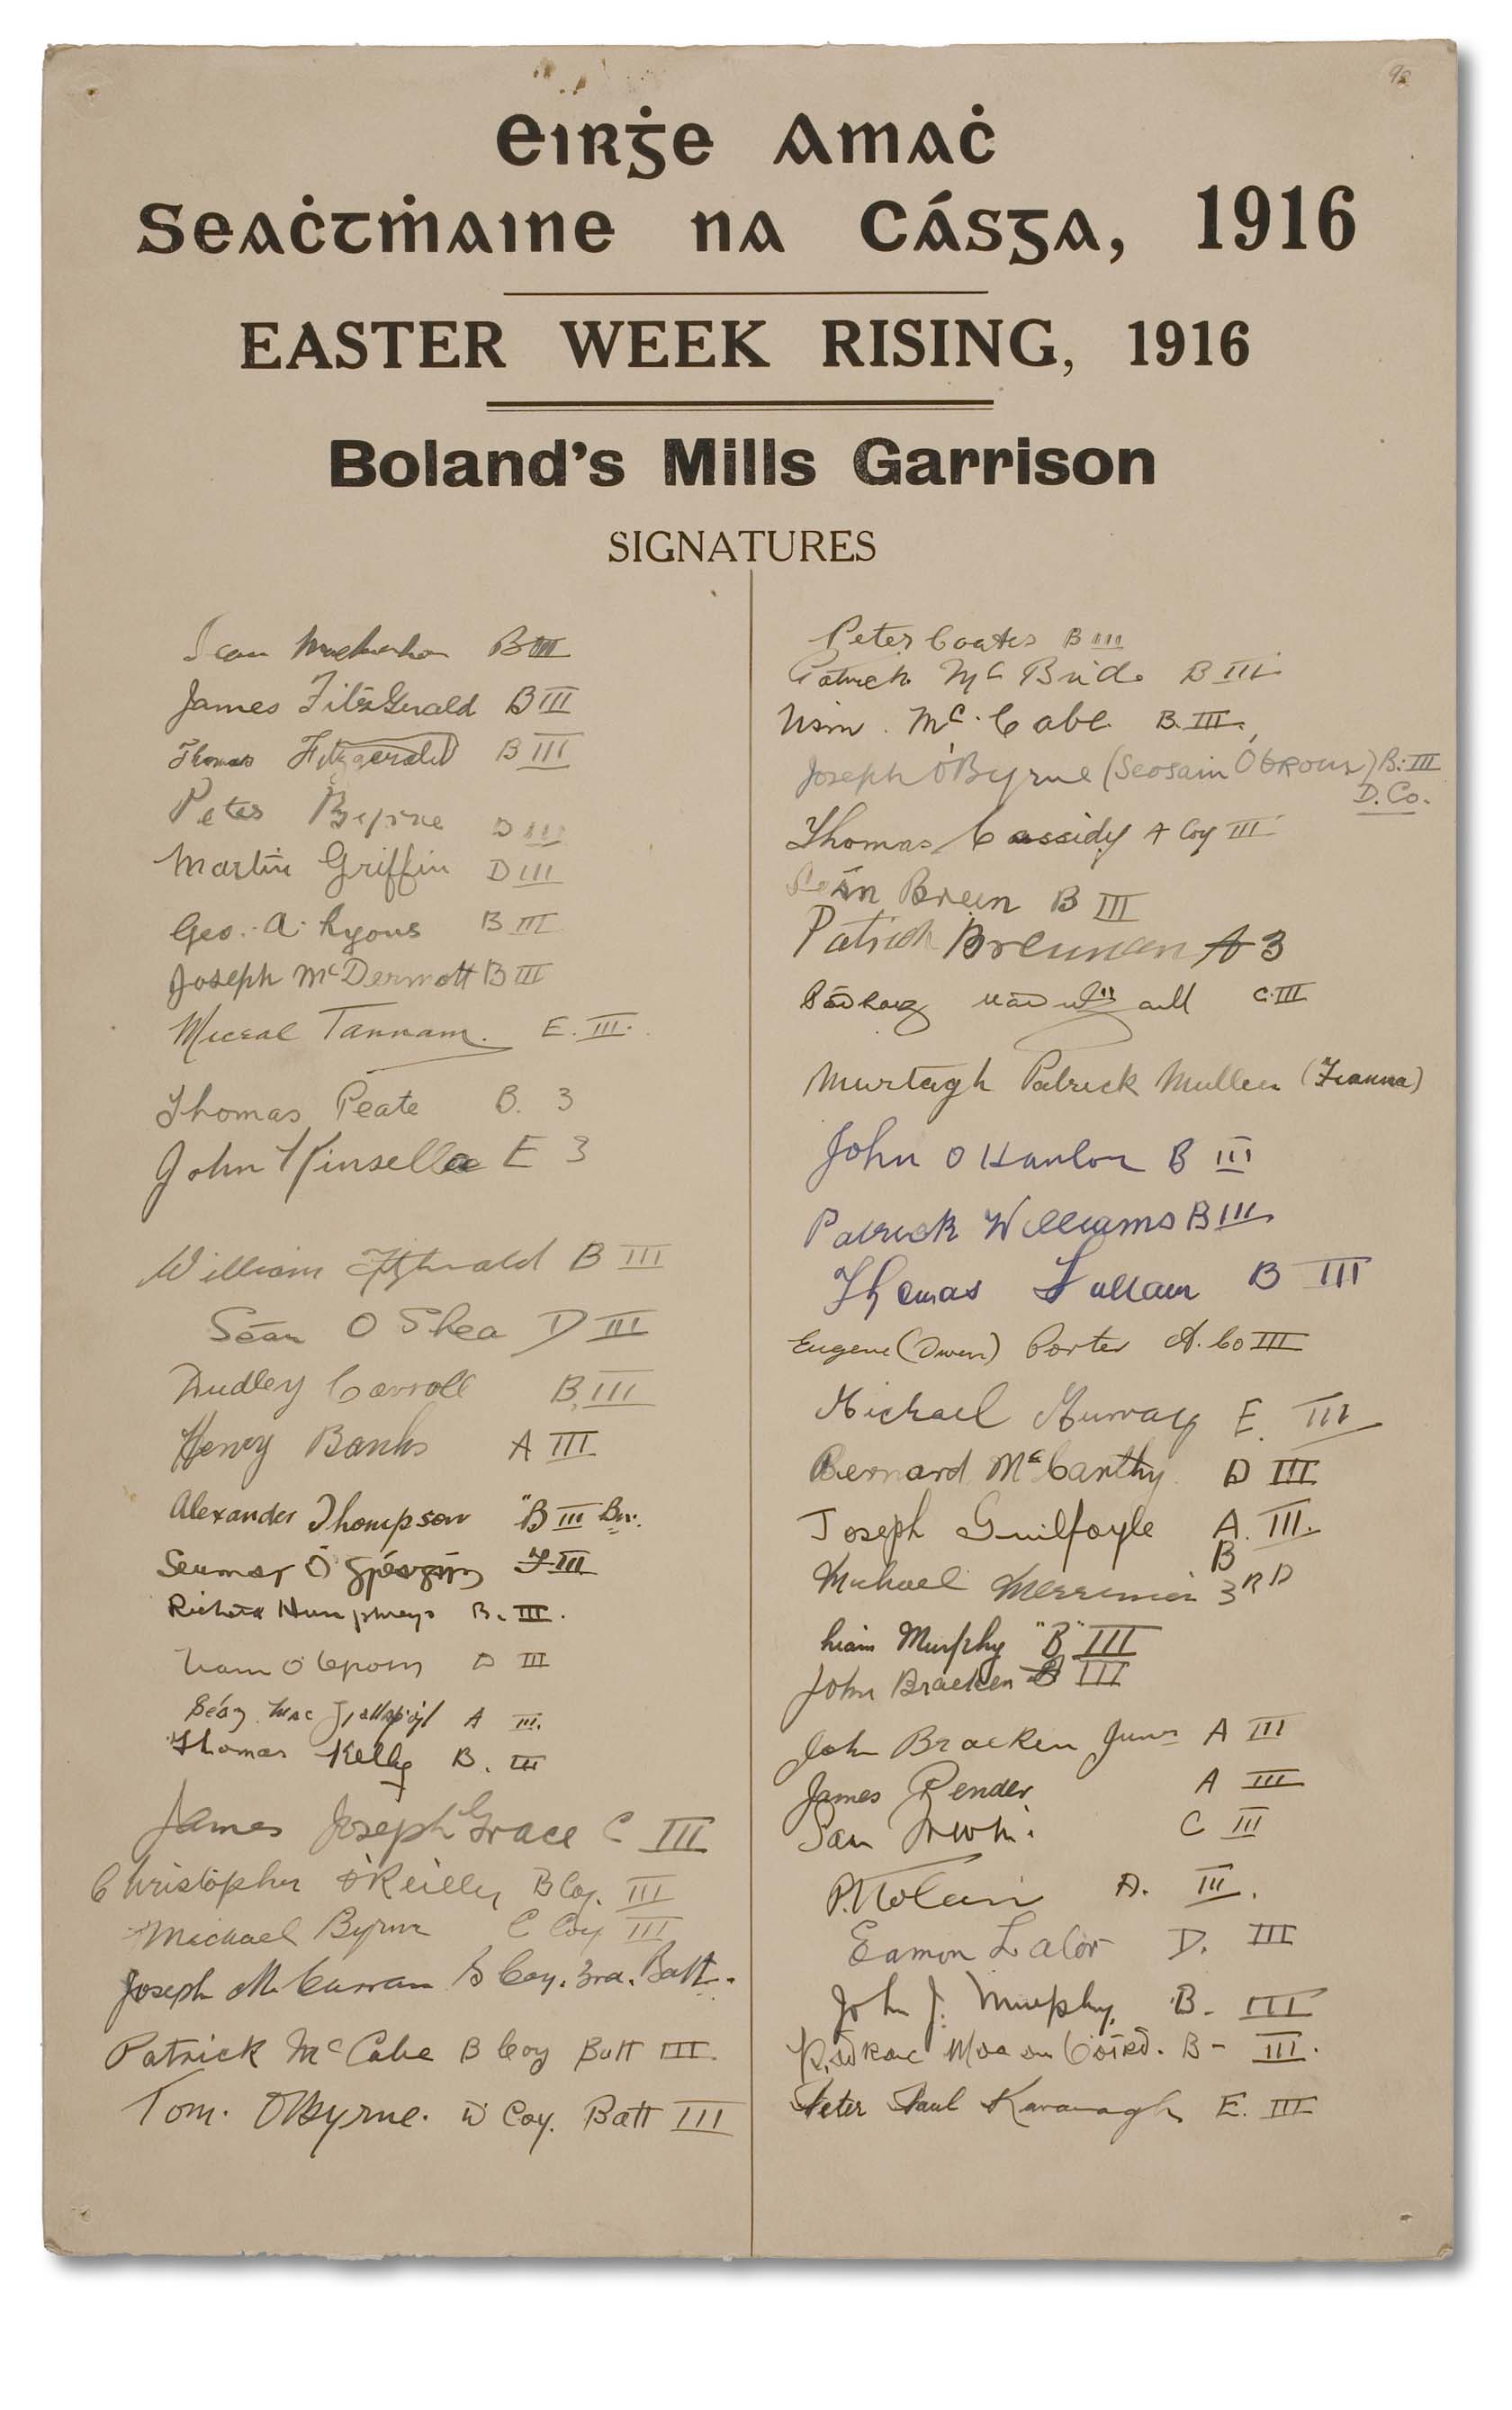 98
Eirġe Amaċ
Seaċtṁaine na Cásga, 1916
EASTER WEEK RISING, 1916
Boland's Mills Garrison
SIGNATURES
Sean MacMahon B III
James FitzGerald B III
Thomas Fitzgerald B III
Peter Byrne D III
Martin Griffin D III
Geo. A. Lyons B III
Joseph McDermott B III
Miceal Tannam. E. III.
Thomas Peate B. 3
John Kinsella E 3
William Fitzgerald B III
Séan O Shea D III
Dudley Carroll B. III
Henry Banks A III
Alexander Thompson "B III Bn.
Seumas Ó III
Richard Humphreys B. III.
Liam O Broin D III
Seán Mac A III.
Thomas Kelly B. III
James Joseph Grace C III
Christopher O'Reilly B Coy. III
Michael Byrne C Coy III
Joseph M. Curran B Coy. 3rd. Batt.
Patrick McCabe B Coy Batt III.
Tom. O'Byrne. D Coy. Batt III
Peter Coates B III
Patrick McBride B III
Wm. Mc.Cabe B. III.
Joseph O'Byrne (Seosaim Ó Broin) B: III
D. Co.
Thomas Cassidy A Coy III
Seán Breen B III
Patrick Brennan A 3
C. III
Murtagh Patrick Mullen (Fianna)
John O Hanlon B III
Patrick Williams B III
Thomas Lullam B III
Eugene (Owen) Porter A. Co III
Michael Murray E. III
Bernard McCarthy D III
Joseph Guilfoyle A. III.
B
Michael Merriman 3RD
Liam Murphy "B" III
John Bracken III
John Bracken Junr A III
James Pender A III
Sam Irwin. C III
P. Nolan A. III.
Eamon Lalor D. III
John J. Murphy. B. III
B - III.
Peter Paul Kavanagh E. III